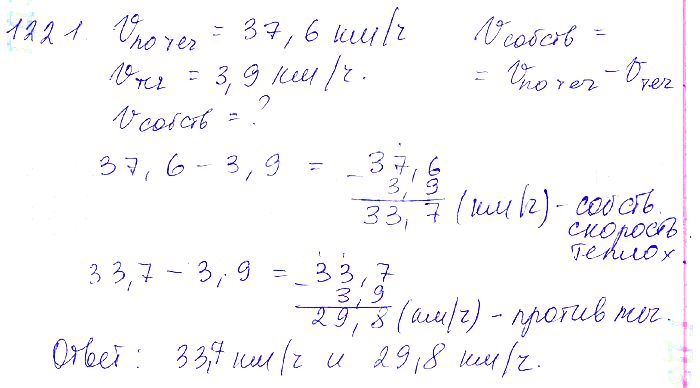 1221. Vпо теч = 37,6 км/ч Vсобств =
Vтч = 3,9 км/ч. = Vпо теч - Vтеч
Vсобств = ?
37,6 - 3,9 = - 37,6
3,9
33,7 (км/ч) - собств.
скорость
теплох.
33,7 - 3,9 = - 33,7
3,9
29,8 (км/ч) - против теч.
Ответ: 33,7 км/ч и 29,8 км/ч.